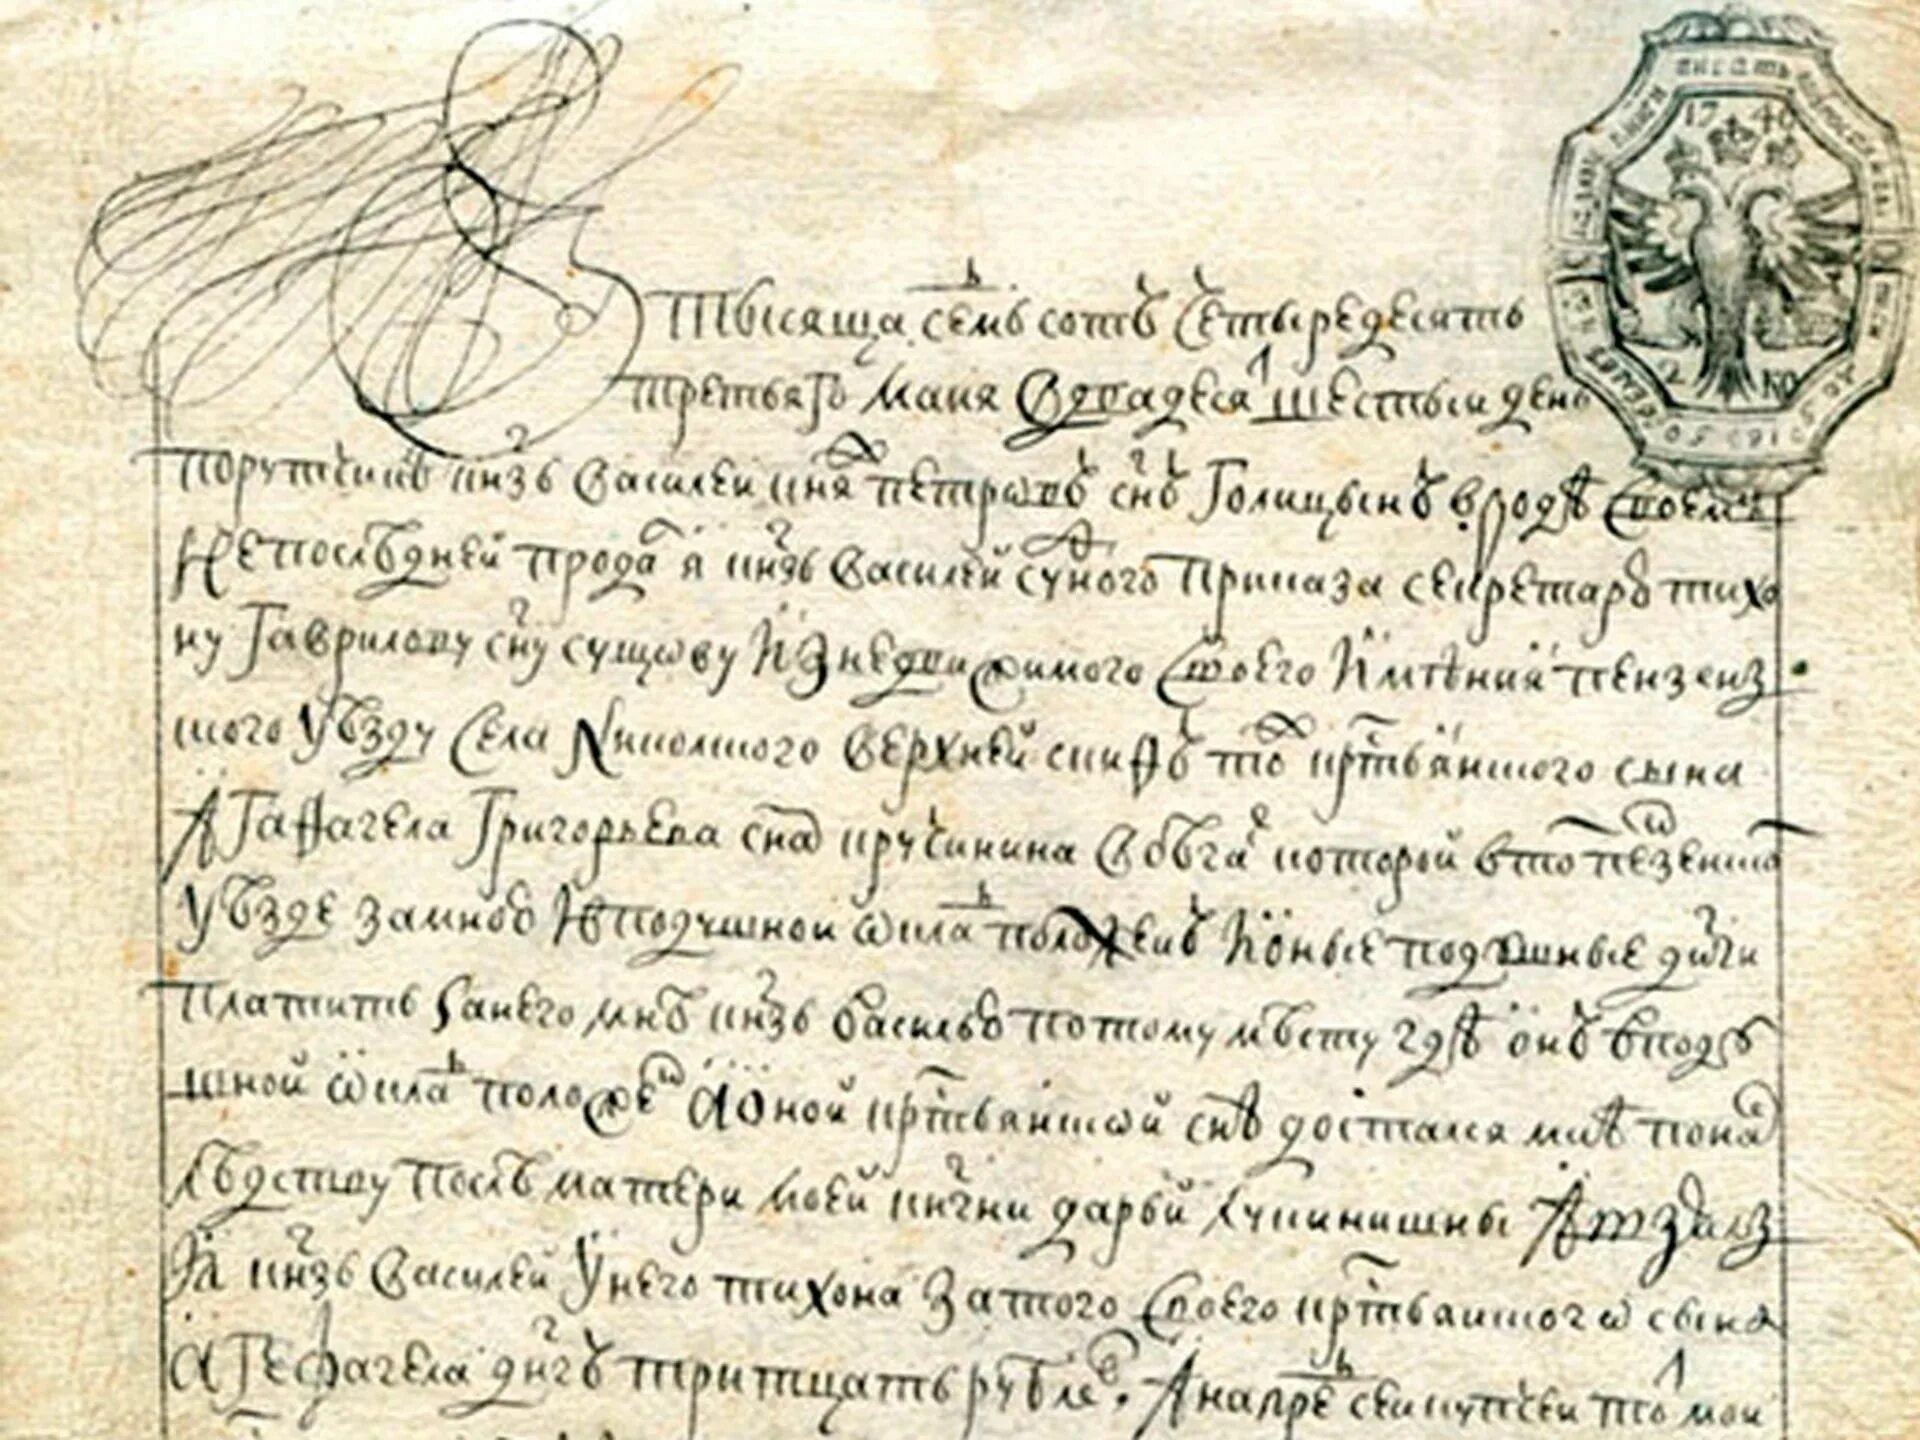 тысяща семь сотъ четыредесять
третьяго маия вдвадеся шестыи день
порутчикъ кнзь василеи кня петровъ снъ голицынъ вродѣ своемъ
непослѣдней прода я кнзь василей суного приказа секретарю тихо
ну гаврилову сну сущову изнедвижимого своего имѣния пензенз
кого уѣзду села николского верхней скифъ то кртьянского сына
агафагела григорьева сна кручинина вбѣга которой вто пезенско
уѣзде замною вподушной окла положенъ иные подушные днги
платить занего мнѣ кнзь василью потому мѣсту гдѣ онъ вподу
шной окла положе аоной кртьянской снъ достался мнѣ пона
лѣдству послѣ матери моей кнгни дарьи лукинишны авзялъ
я кнзь василей унего тихона затого своего кртьянского сына
агефагела днгъ тритцать рубле. анапре сеи купчеи то мои